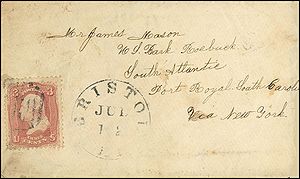 Mr James Mason
U S Bark Roebuck
South Atlantic
Port Royal South Carolin
Via New York.
BRISTOL
JUL
3 3
U CENTS S